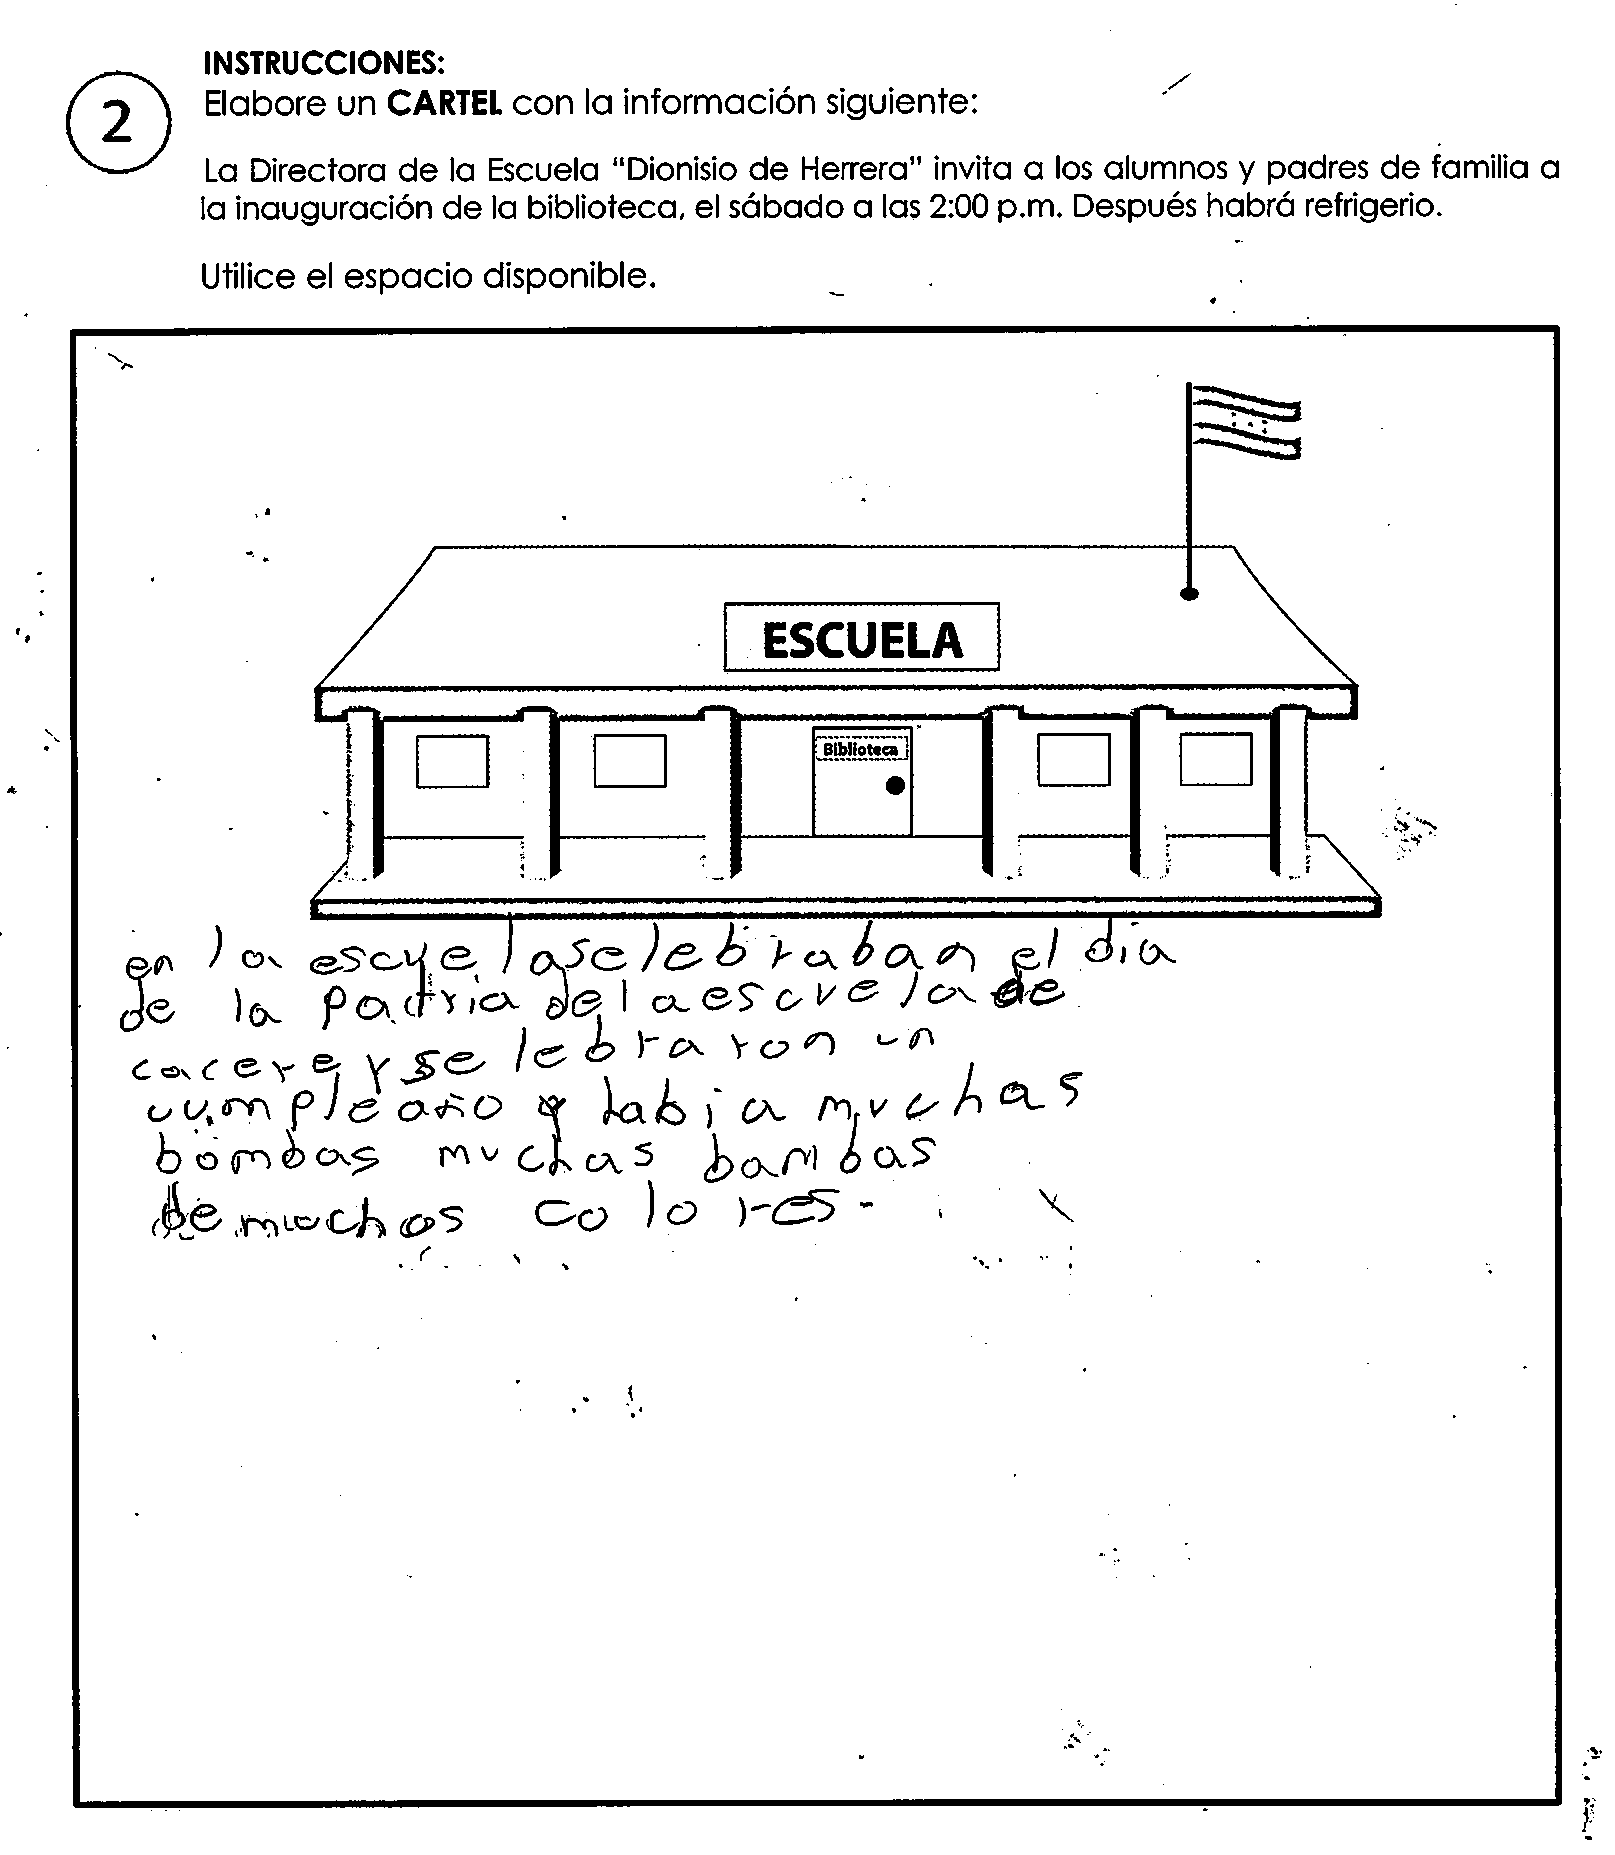 INSTRUCCIONES:
2
Elabore un CARTEL con la información siguiente:
La Directora de la Escuela "Dionisio de Herrera" invita a los alumnos y padres de familia a
la inauguración de la biblioteca, el sábado a las 2:00 p.m. Después habrá refrigerio.
Utilice el espacio disponible.
ESCUELA
Biblioteca
en la escuela selebraban el dia
de la patria de la escuela de
selebraron un
cumpleaño y habia muchas
bombas muchas bambas
de muchos colores.